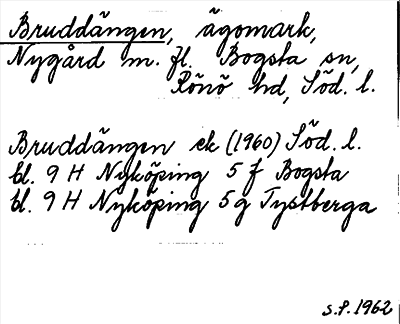 Bruddängen, ägomark,
Nygård m. fl. Bogsta sn,
Rönö hd, Söd. l.
Bruddängen ek (1960) Söd. l.
bl. 9 H Nyköping 5 f Bogsta
bl. 9 H Nyköping 5 g Tystberga
S.P. 1962